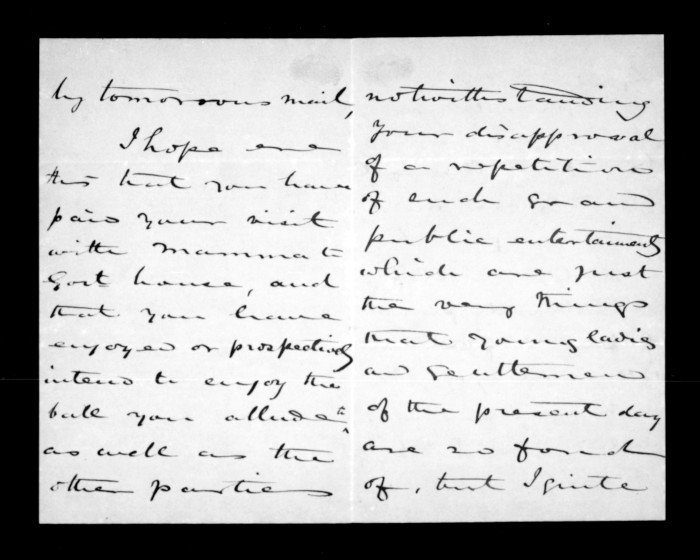 by tomorrows mail,
I hope ere
this that you have
paid your visit
with Mamma to
Govt house, and
that you have
enjoyed or prospectively
intend to enjoy the
ball you allude to
as well as the
other parties
notwithstanding
your disapproval
of a repetition
of such grand
public entertainments
which are just
the very things
that young ladies
and Gentlemen
of the present day
are so fond
of, but I quite